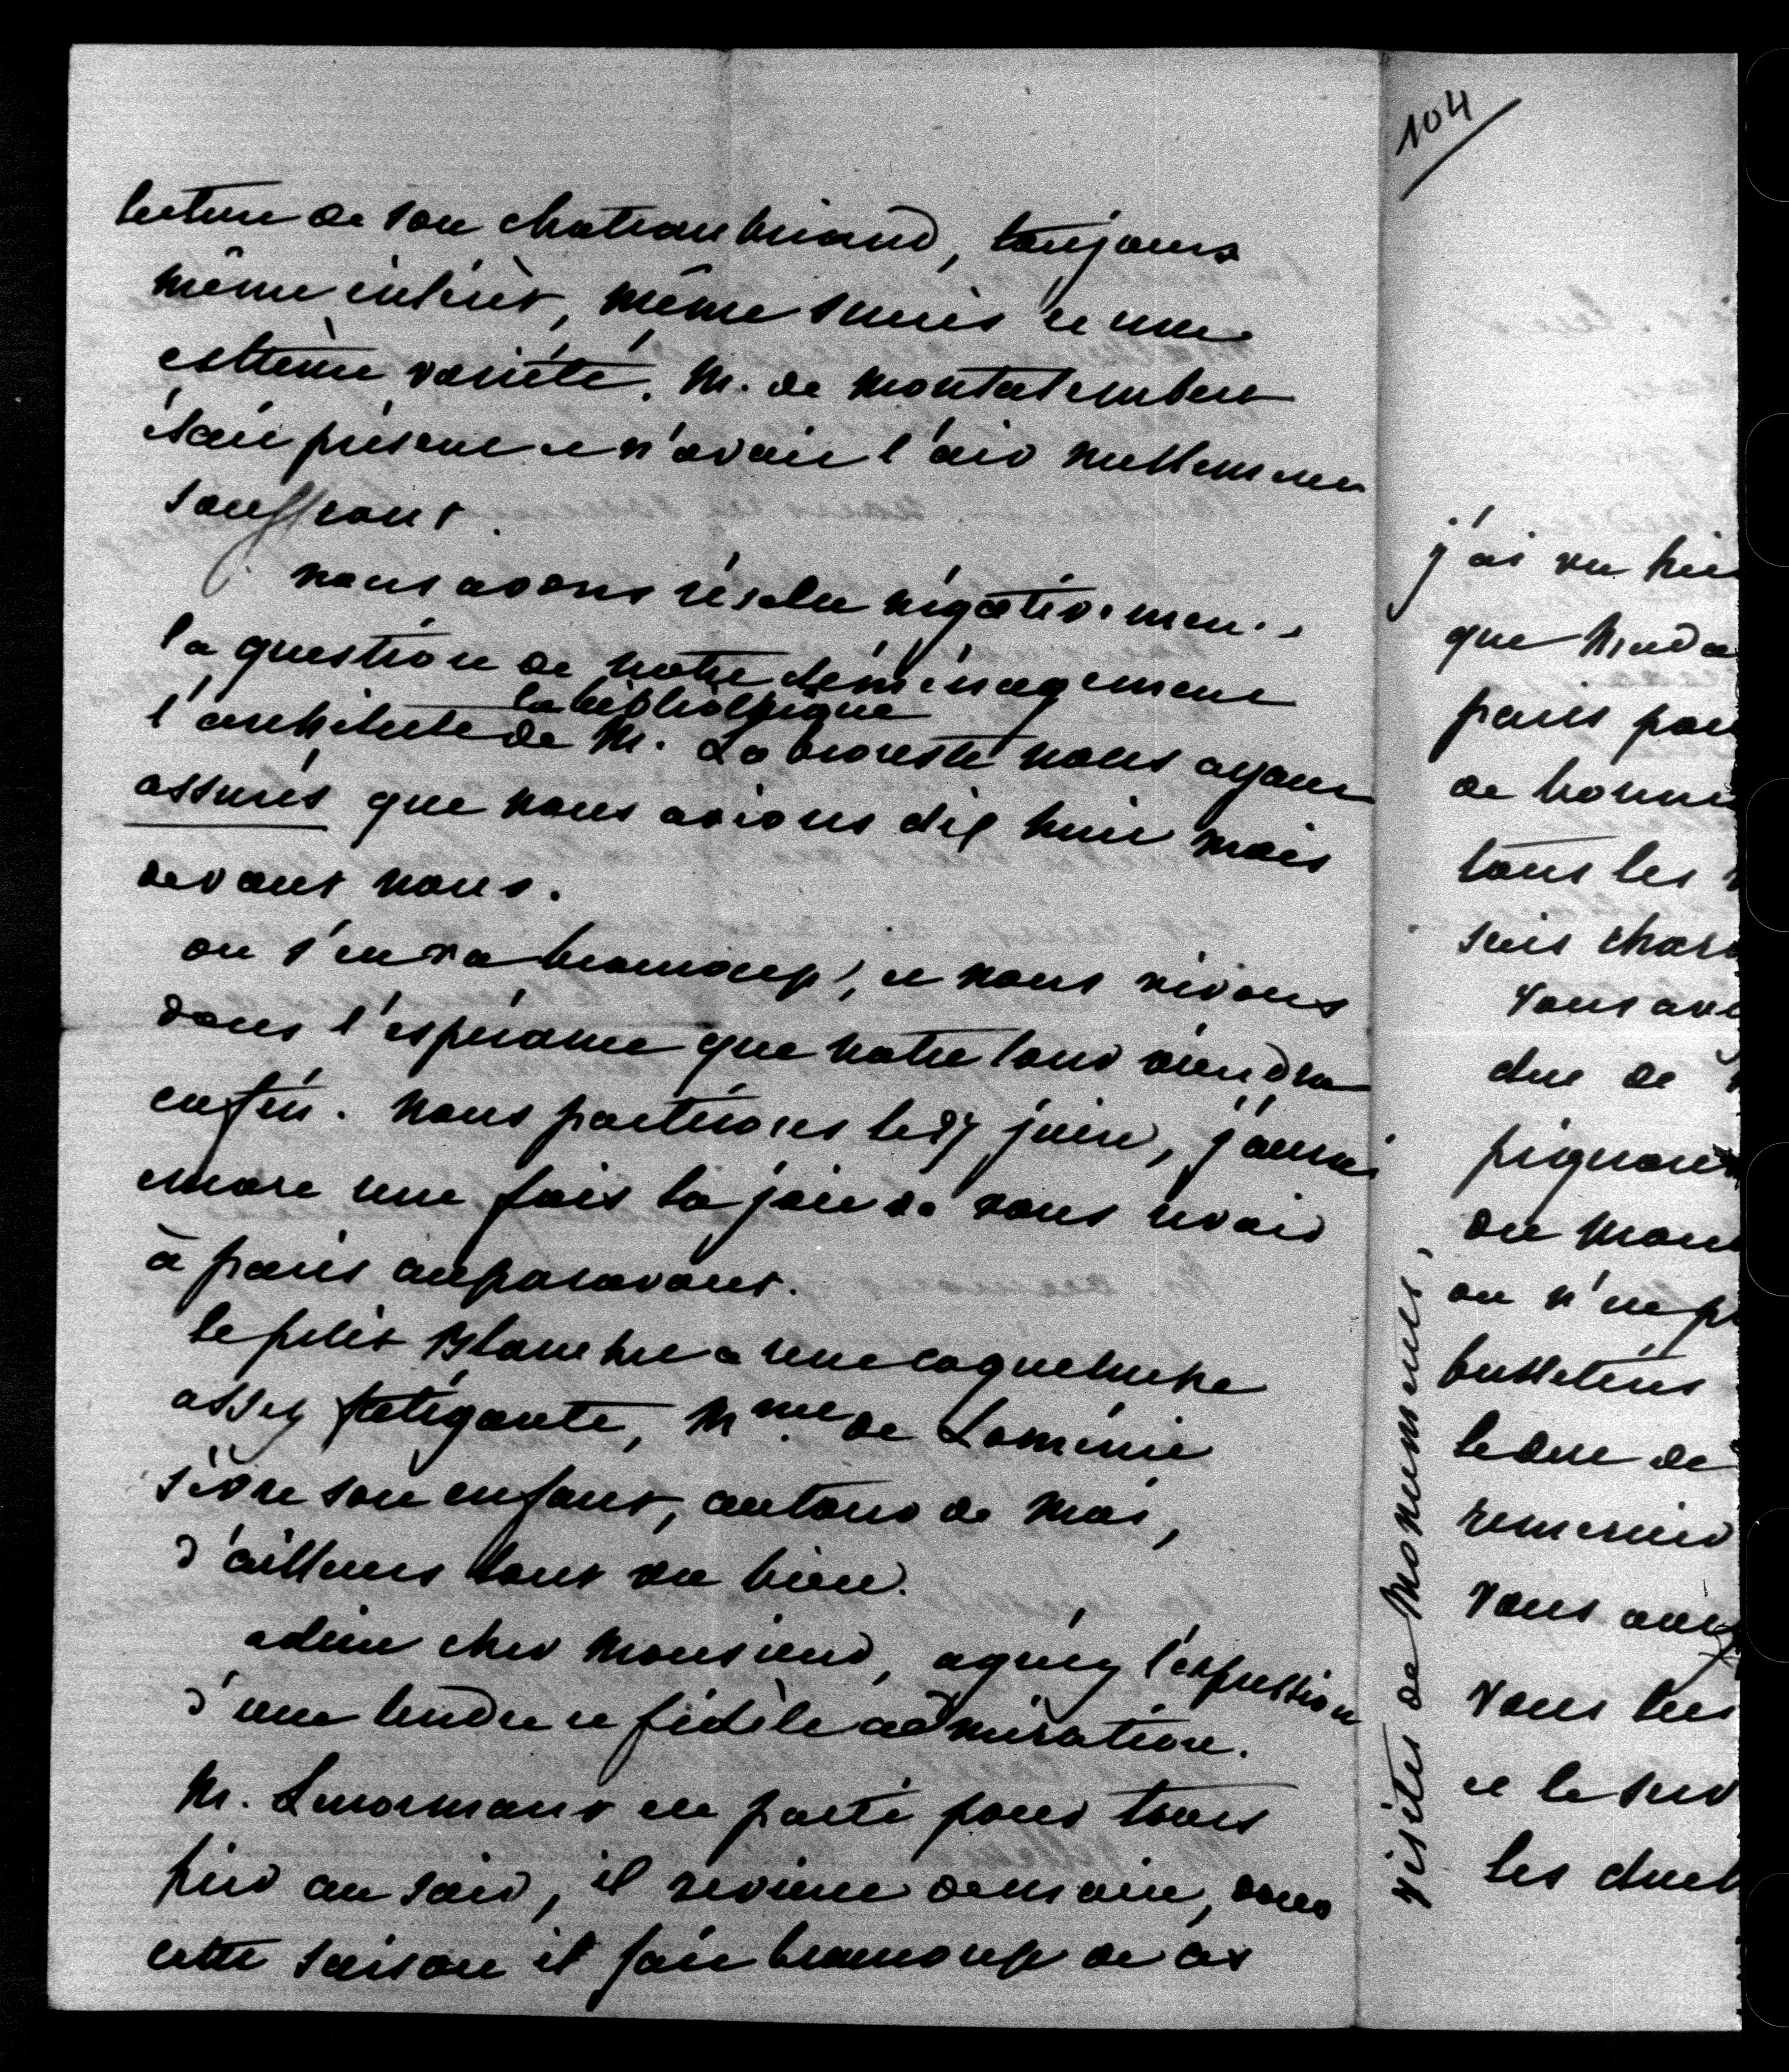 lecture de son chateaubriand, toujours
même intérêt, même succès et une
extrème variété. M. de Montalembert
étair présent et n'avait l'air nullement
souffrant.
nous avons résolu négativement
la question de notre déménagement
la bibliothèque
l'architecte de M. Labrouste nous ayant
assurés que nous avions dix huit mois
devant nous.
on s'en va beaucoup, et nous vivons
dans l'espérance que notre tour viendra
enfin. nous partirons le 27 juin, j'aurai
encore une fois la joie de vous revoir
à paris auparavant.
le petit Blanche a une coqueluche
assez fatigante, Mme de Loménie
sèvre son enfant, autour de moi,
d'ailleurs tout va bien.
adieu cher Monsieur, agréez l'expression
d'une tendre et fidèle admiration.
M. Lenormant est parti pour tours
hier au soir, il revient demain, dans
cette saison il fait beaucoup de ces
visites de Monuments.
104
j'ai vu hie
que Mada
paris pou
de bonne
tous les
suis char
vous ave
duc de
on n'en p
bulletins
le duc de
remercier
vous avez
vous
et le
les